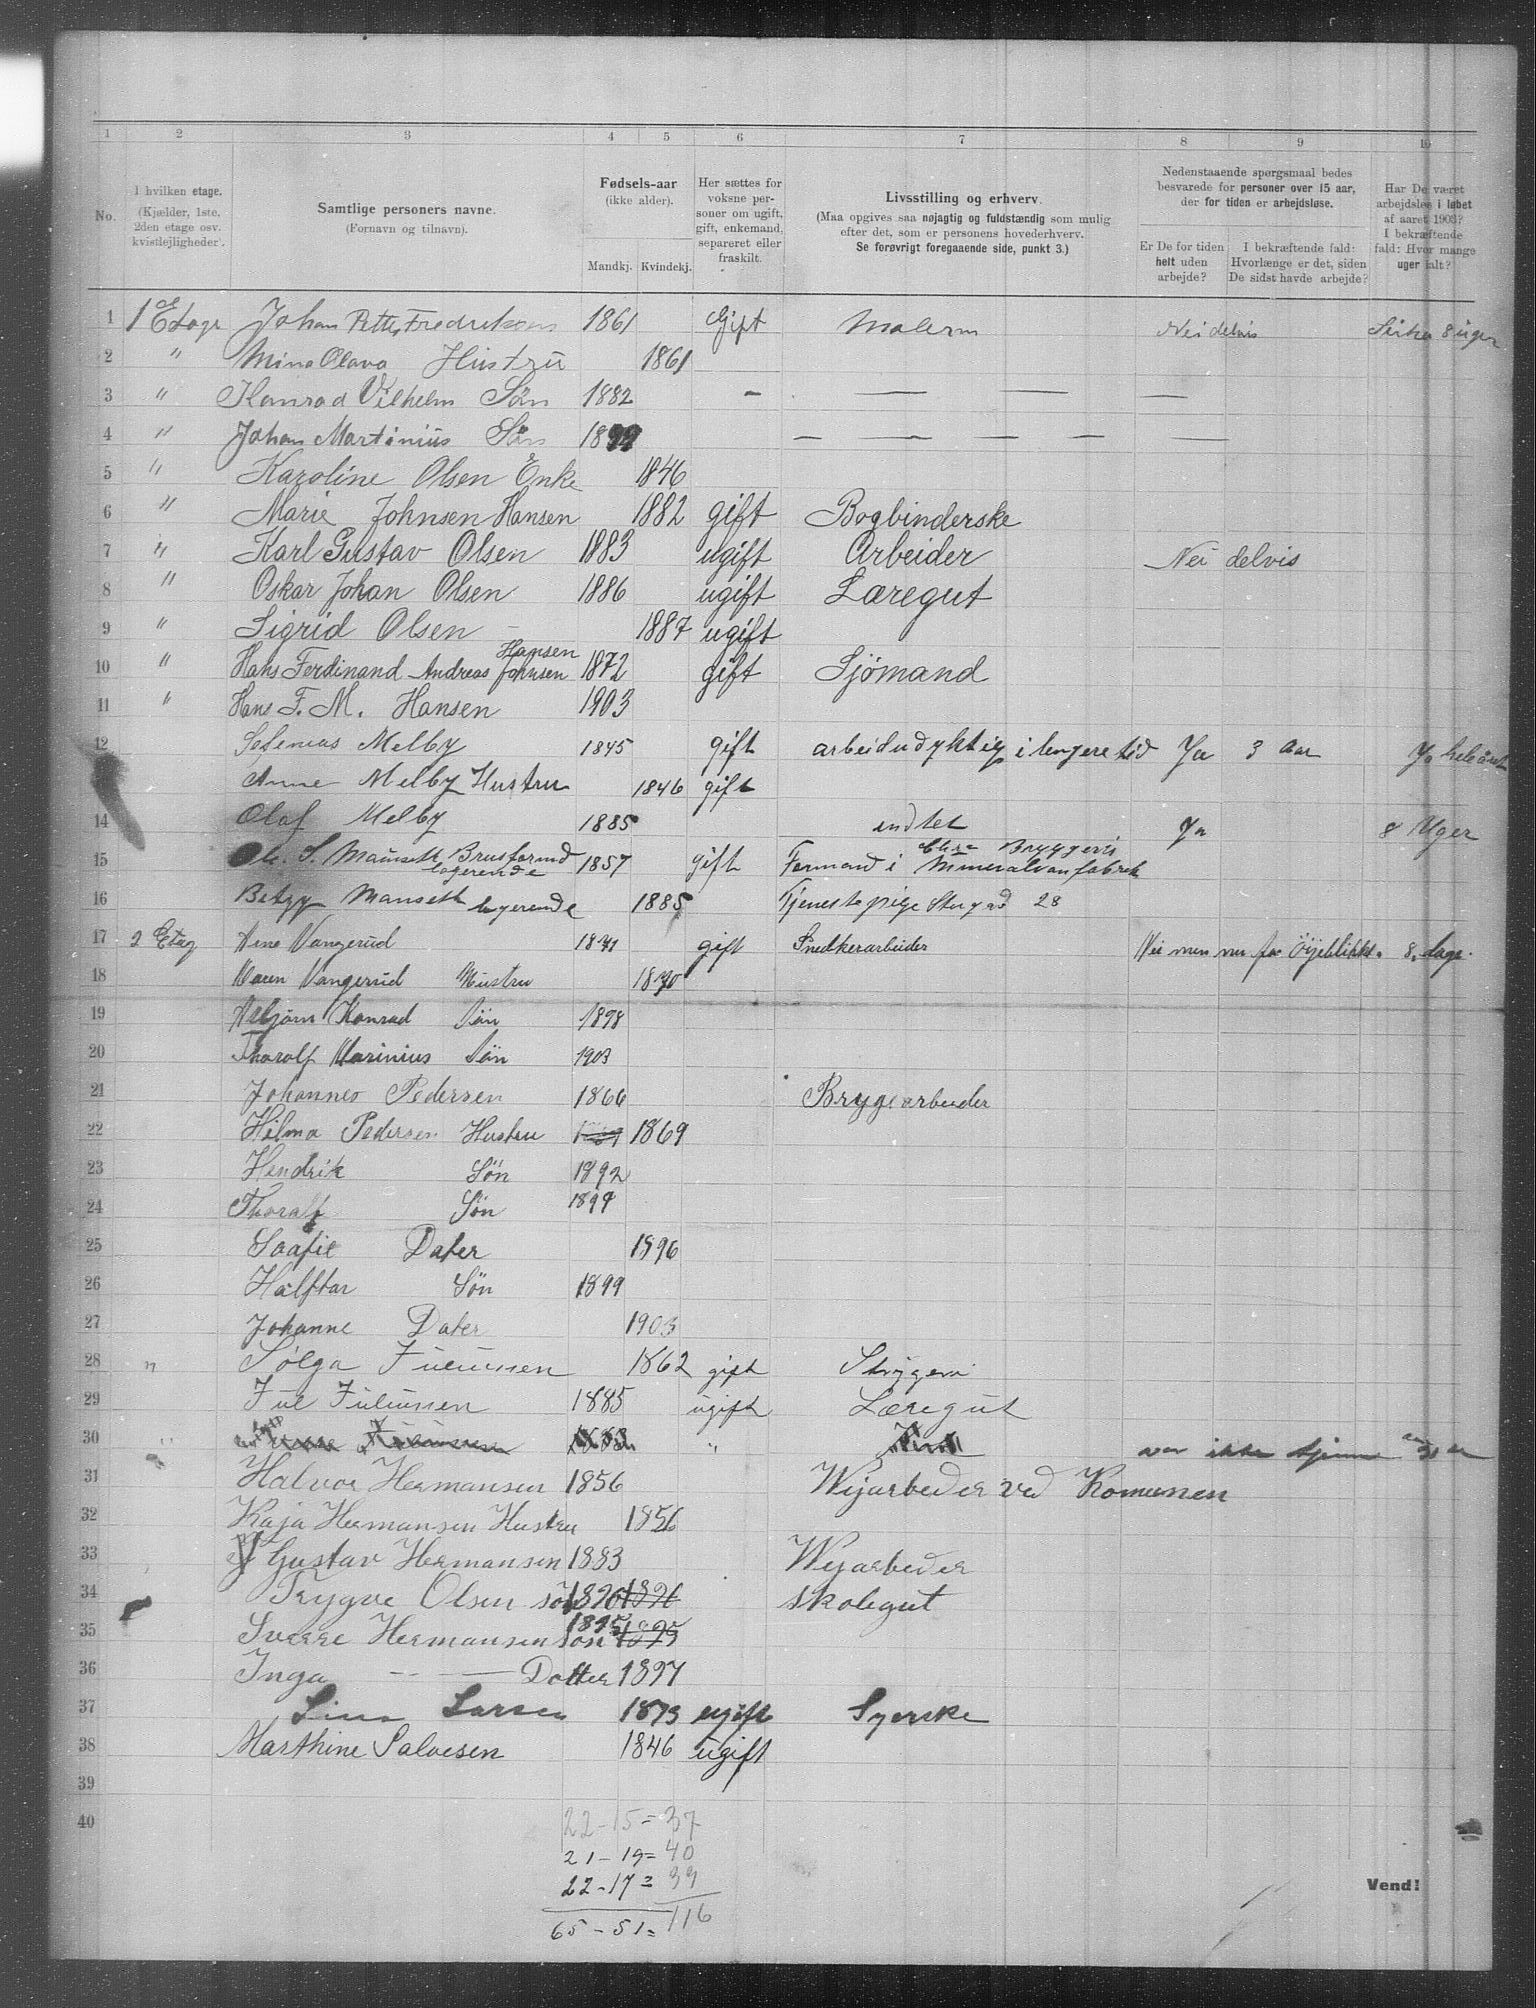 1 2 3 4 5 6 7 8 9 10
No. I hvilken etage. (Kjælder, 1ste, 2den etage osv. kvistlejligheder).
Samtlige personers navne. (Fornavn og tilnavn).
Fødsels-aar (ikke alder). Mandkj. Kvindekj.
Her sættes for voksne personer om ugift, gift, enkemand, separeret eller fraskilt.
Livsstilling og erhverv. (Maa opgives saa nøjagtig og fuldstændig som mulig efter det, som er personens hovederhverv. Se forøvrigt foregaaende side, punkt 3.)
Nedenstaaende spørgsmaal bedes besvarede for personer over 15 aar, der for tiden er arbejdsløse.
Er De for tiden helt uden arbejde?
I bekræftende fald: Hvorlænge er det, siden De sidst havde arbejde?
Har De været arbejdsløs i løbet af aaret 1903? I bekræftende fald: Hvor mange uger ialt?
1 1 Etage Johan Petter Fredriksen 1861 Gift Malerm Nei delvis 8 uger
2 " Mina Olava Hustru 1861
3 " Konrad Vilhelm Sön 1882 — — — —
4 " Johan Martinius Sön — — — — —
5 " Karoline Olsen Enke 1846
6 " Marie Johnsen Hansen 1882 gift Bogbinderske
7 " Karl Gustav Olsen 1883 ugift Arbeider Nei delvis
8 " Oskar Johan Olsen 1886 ugift Læregut
9 " Sigrid Olsen — 1887 ugift
10 " Hans Ferdinand Andreas Johnsen Hansen 1872 gift Sjömand
11 " Hans F. M. Hansen 1903
12 Melby 1845 gift arbeidudyktig i lengere tid Ja 3 Aar Ja
Anne Melby Hustru 1846 gift
14 Olaf Melby 1885 intet Ja 8 Uger
15 S. Brusferud logerende 1857 gift Formand i Bryggeri
16 Betzy logerende 1885 Tjenestepige 28
17 2 Etag Arne Vangerud 1871 gift Snedkerarbeider Nei men nu for Öijeblikket 8. dage.
18 Maren Vangerud Hustru 1870
19 Asbjörn Konrad Sön 1898
20 Thorolf Marinius Sön 1903
21 Johannes Pedersen 1866 Brygearbeider
22 Hilma Pedersen Hustru 1869
23 Hendrik Sön 1892
24 Thoralf Sön 1894
25 Soafie Dater 1896
26 Halftar Sön 1899
27 Johanne Dater 1903
28 " Sölga Juliussen 1862 gift Strygeri
29 Jul Juliussen 1885 ugift Læregut
30 " var ikke hjemme
31 Halvor Hermansen 1856 Vejarbeder ved Komunen
32 Kaja Hermansen Hustru 1856
33 Gustav Hermansen 1883 Vejarbeder
34 Trygve Olsen sön 1896 1896 skolegut
35 Sverre Hermansen sön 1895 1895
36 Inga — — Datter 1897
37 Lina Larsen 1873 ugift Syerske
38 Marthine Salvesen 1846 ugift
39
40
22-15=37
21-19=40
22-17=39
65-51=116
Vend!